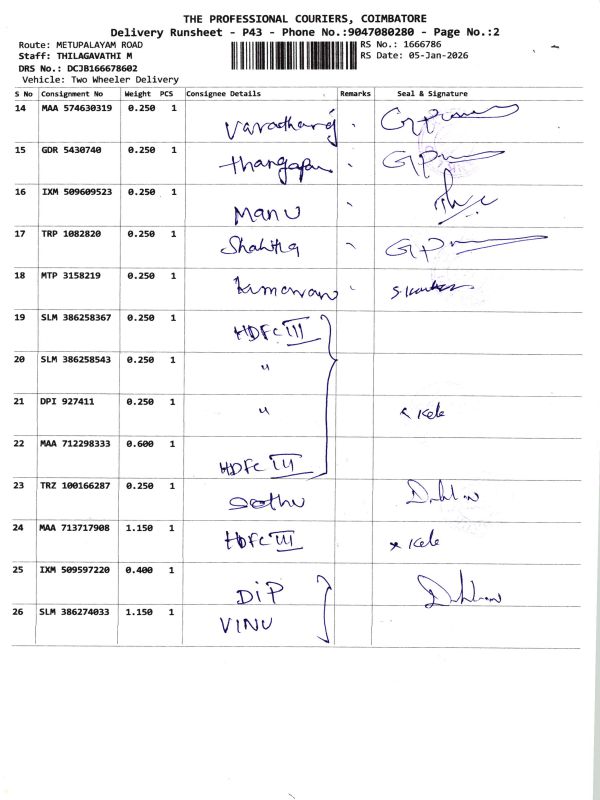 THE PROFESSIONAL COURIERS, COIMBATORE
Delivery Runsheet - P43 - Phone No.:9047080280 - Page No.:2
Route: METUPALAYAM ROAD RS No.: 1666786
Staff: THILAGAVATHI M RS Date: 05-Jan-2026
DRS No.: DCJB166678602
Vehicle: Two Wheeler Delivery
S No Consignment No Weight PCS Consignee Details Remarks Seal & Signature
14 MAA 574630319 0.250 1
15 GDR 5430740 0.250 1
16 IXM 509609523 0.250 1 Manu
17 TRP 1082820 0.250 1
18 MTP 3158219 0.250 1
19 SLM 386258367 0.250 1 HDFC III
20 SLM 386258543 0.250 1 〃
21 DPI 927411 0.250 1 〃
22 MAA 712298333 0.600 1 HDFC III
23 TRZ 100166287 0.250 1 Sethu
24 MAA 713717908 1.150 1 HDFC III
25 IXM 509597220 0.400 1 DIP
26 SLM 386274033 1.150 1 VINU